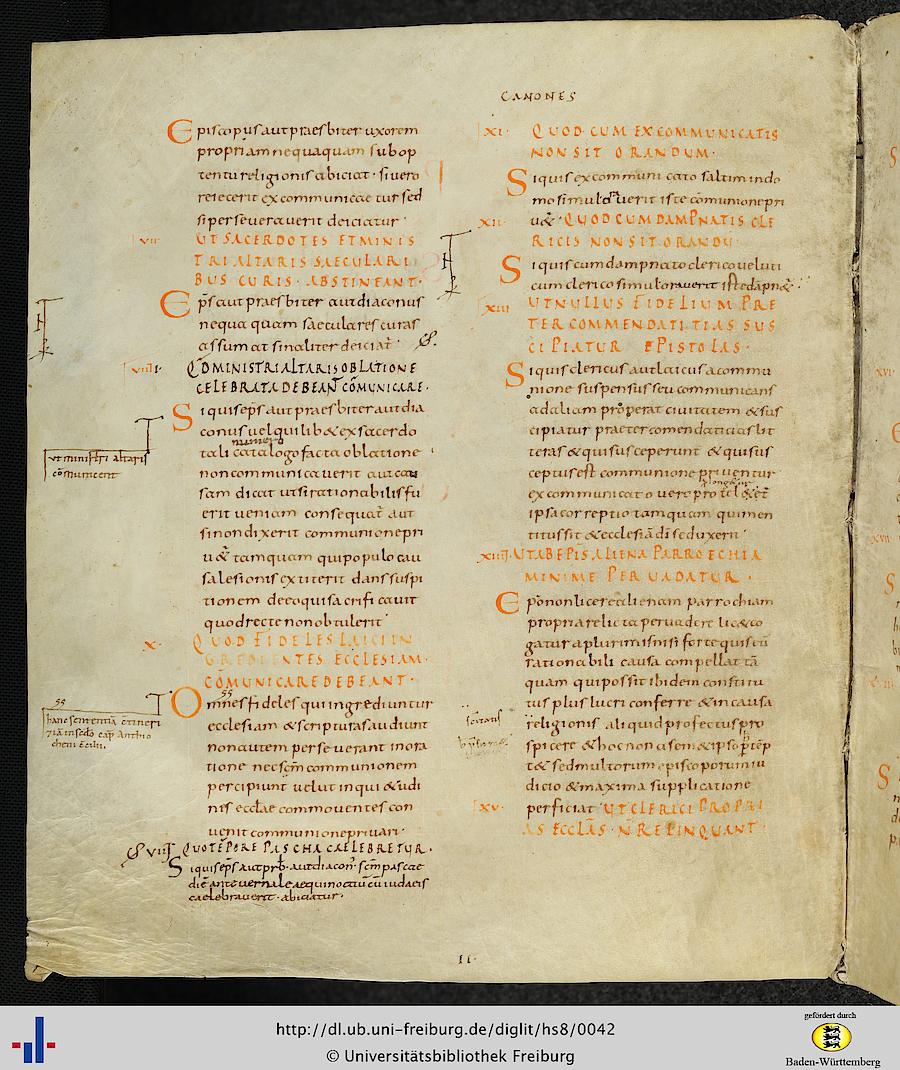 CANONES
Episcopus aut praesbiter uxorem
propriam nequaquam sub op
tentu religionis abiciat · si vero
reiecerit excommunicaetur sed
si perseveraverit deiciatur
VII UT SACERDOTES ET MINIS
TRI ALTARIS SAECULARI
BUS CURIS · ABSTINEANT ·
Eps aut praesbiter aut diaconus
nequaquam saeculares curas
assumat sin aliter deiciat
VIIII QD MINISTRI ALTARIS OBLATIONE
CELEBRATA DEBEANT COMUNICARE ·
Si quis eps aut praesbiter aut dia
conus vel quilib& ex sacerdo
numero
tali catalogo facta oblatione
ut ministri altaris
comunicent
non communicaverit aut cau
sam dicat ut si rationabilis fu
erit veniam consequat aut
si non dixerit communione pri
u& tamquam qui populo cau
sa lesionis extiterit dans suspi
tionem de eo qui sacrificavit
quod recte non obtulerit
X · QUOD FIDELES LAICI IN
GREDIENTES ECCLESIAM ·
COMUNICARE DEBEANT ·
Omnes fideles qui ingrediuntur
hanc sententiam
ecclesiam & scripturas audiunt
non autem perseverant in ora
tione nec scm communionem
percipiunt velut inqui&udi
nis ecclae commoventes con
venit communione privari ·
VIII QUO TEPORE PASCHA CAELEBRETUR ·
Si quis eps aut prb · aut diacon · scm pascae
die ante vernale aequinoctiu cu iudaeis
caelebraverit · abiciatur ·
XI · QUOD CUM EXCOMMUNICATIS
NON SIT ORANDUM ·
Si quis excommunicato saltim in do
mo simul oraverit iste comunione pri
XII u& · QUOD CUM DAMPNATIS CLE
RICIS NON SIT ORANDU
Si quis cum dampnato clerico veluti
cum clerico simul oraverit iste dapn&
XIII UT NULLUS FIDELIUM PRE
TER COMMENDATITIAS SUS
CIPIATUR EPISTOLAS ·
Si quis clericus aut laicus a commu
nione suspensus seu communicans
ad aliam properat civitatem & sus
cipiatur praeter comendaticias lit
teras & qui susceperunt & qui sus
ceptus est communione priventur
excommunicato vero protel&
ipsa correptio tamquam qui men
titus sit & ecclesia di seduxerit
XIIII UT AB EPIS ALIENA PARROECHIA
MINIME PERVADATUR ·
Epo non licere alienam parrochiam
propria relicta pervadere lic& co
gatur a plurimis nisi forte quis eu
rationabili causa compellat ta
quam qui possit ibidem constitu
tus plus lucri conferre & in causa
religionis aliquid profectus pro
spicere & hoc non a sem&ipso pertep
t& sed multorum episcoporum iu
dicio & maxima supplicatione
perficiat · XV · UT CLERICI PROPRI
AS ECCLAS · N RELINQUANT ·
II ·
http://dl.ub.uni-freiburg.de/diglit/hs8/0042
© Universitätsbibliothek Freiburg
gefördert durch
Baden-Württemberg